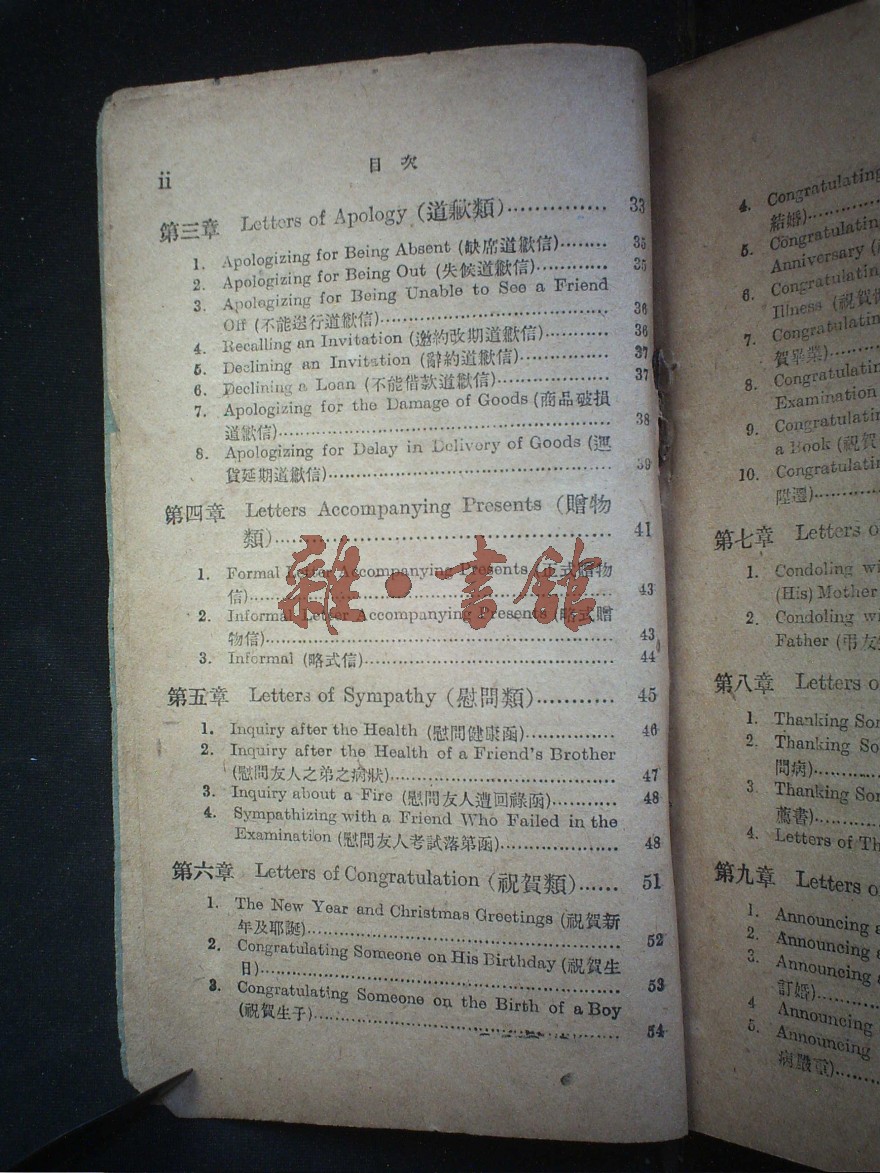 ii
目次
第三章 Letters of Apology (道歉類)…………… 33
1. Apologizing for Being Absent (缺席道歉信)…….. 35
2. Apologizing for Being Out (失候道歉信)………… 35
3. Apologizing for Being Unable to See a Friend
Off (不能送行道歉信)…………………………………… 36
4. Recalling an Invitation (邀約改期道歉信)………… 36
5. Declining an Invitation (辭約道歉信)……………… 37
6. Declining a Loan (不能借款道歉信)………………… 37
7. Apologizing for the Damage of Goods (商品破損
道歉信)…………………………………………………… 38
8. Apologizing for Delay in Delivery of Goods (運
貨延期道歉信)…………………………………………… 39
第四章 Letters Accompanying Presents (贈物
類)………………………………………………… 41
1. Formal Letter Accompanying Presents (正式贈物
信)………………………………………………………… 43
2. Informal Letter Accompanying Presents (略式贈
物信)……………………………………………………… 43
3. Informal (略式信)……………………………………… 44
第五章 Letters of Sympathy (慰問類)………… 45
1. Inquiry after the Health (慰問健康函)…………… 46
2. Inquiry after the Health of a Friend's Brother
(慰問友人之弟之病狀)………………………………… 47
3. Inquiry about a Fire (慰問友人遭回祿函)………… 48
4. Sympathizing with a Friend Who Failed in the
Examination (慰問友人考試落第函)………………… 48
第六章 Letters of Congratulation (祝賀類)…… 51
1. The New Year and Christmas Greetings (祝賀新
年及耶誕)……………………………………………… 52
2. Congratulating Someone on His Birthday (祝賀生
日)……………………………………………………… 53
3. Congratulating Someone on the Birth of a Boy
(祝賀生子)……………………………………………… 54
4. Congratulating
結婚)………
5. Congratulatin
Anniversary (
6. Congratulatin
Illness (祝賀
7. Congratulatin
賀畢業)………
8. Congratulatin
Examination
9. Congratulatin
a Book (祝賀
10. Congratulati
陞遷)………
第七章 Letters o
1. Condoling wi
(His) Mother
2. Condoling wi
Father (弔友
第八章 Letters o
1. Thanking Som
2. Thanking So
問病)………
3. Thanking Som
薦書)………
4. Letters of Th
第九章 Letters o
1. Announcing a
2. Announcing a
3. Announcing a
訂婚)………
4 Announcing
5. Announcing
病嚴重)………
雜·書館